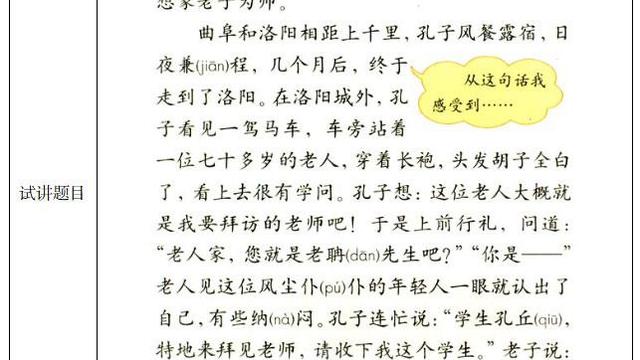 试讲题目
想家老子为师。
曲阜和洛阳相距上千里，孔子风餐露宿，日
夜兼(jiān)程，几个月后，终于
走到了洛阳。在洛阳城外，孔
子看见一驾马车，车旁站着
从这句话我
感受到……
一位七十多岁的老人，穿着长袍，头发胡子全白
了，看上去很有学问。孔子想：这位老人大概就
是我要拜访的老师吧！于是上前行礼，问道：
“老人家，您就是老聃(dān)先生吧？”“你是——”
老人见这位风尘仆(pú)仆的年轻人一眼就认出了
自己，有些纳(nà)闷。孔子连忙说：“学生孔丘(qiū)，
特地来拜见老师，请收下我这个学生。”老子说：